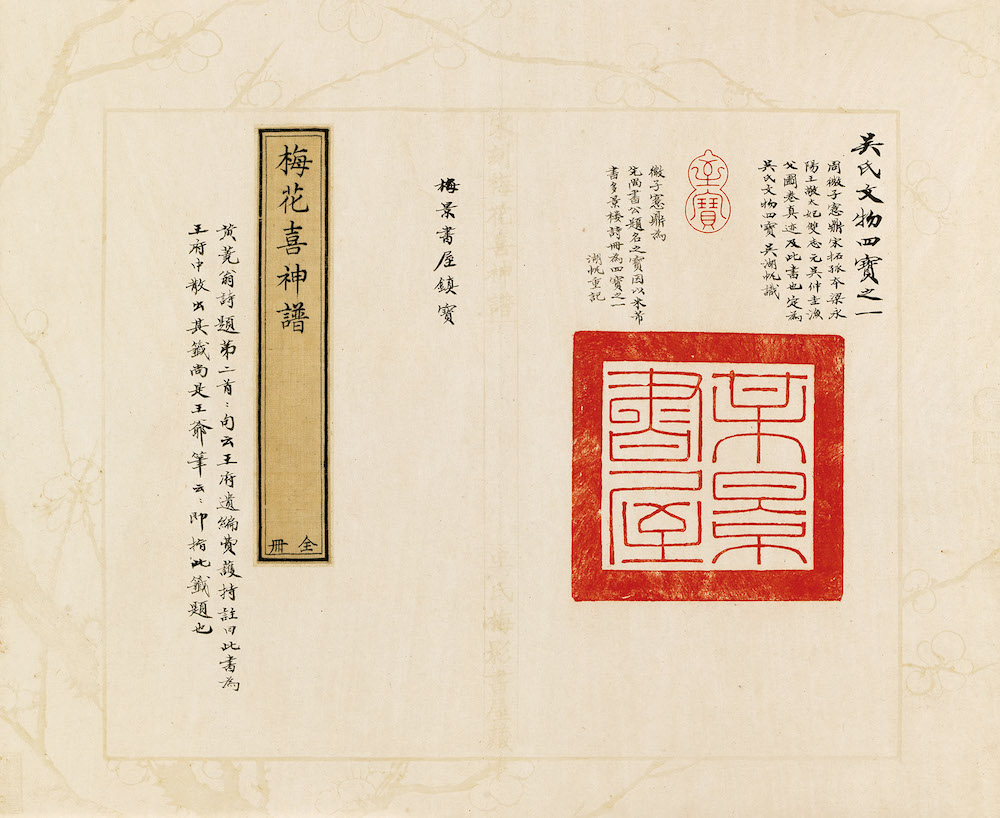 吳氏文物四寶之一
周微子愙鼎宋拓孤本梁永
陽王敬太妃雙志元吳仲圭漁
父圖卷真迹及此書也定為
吳氏文物四寶吳湖帆識
至寶
微子愙鼎為
先尚書公題名之寶因以米芾
書多景樓詩冊為四寶之一
湖帆重記
某景書屋
梅景書屋鎮寶
梅花喜神譜
全冊
黃蕘翁詩題第二首:句云王府遺編賷護持註曰此書為
王府中散出其籤尚是王爺筆云:即指此籤題也